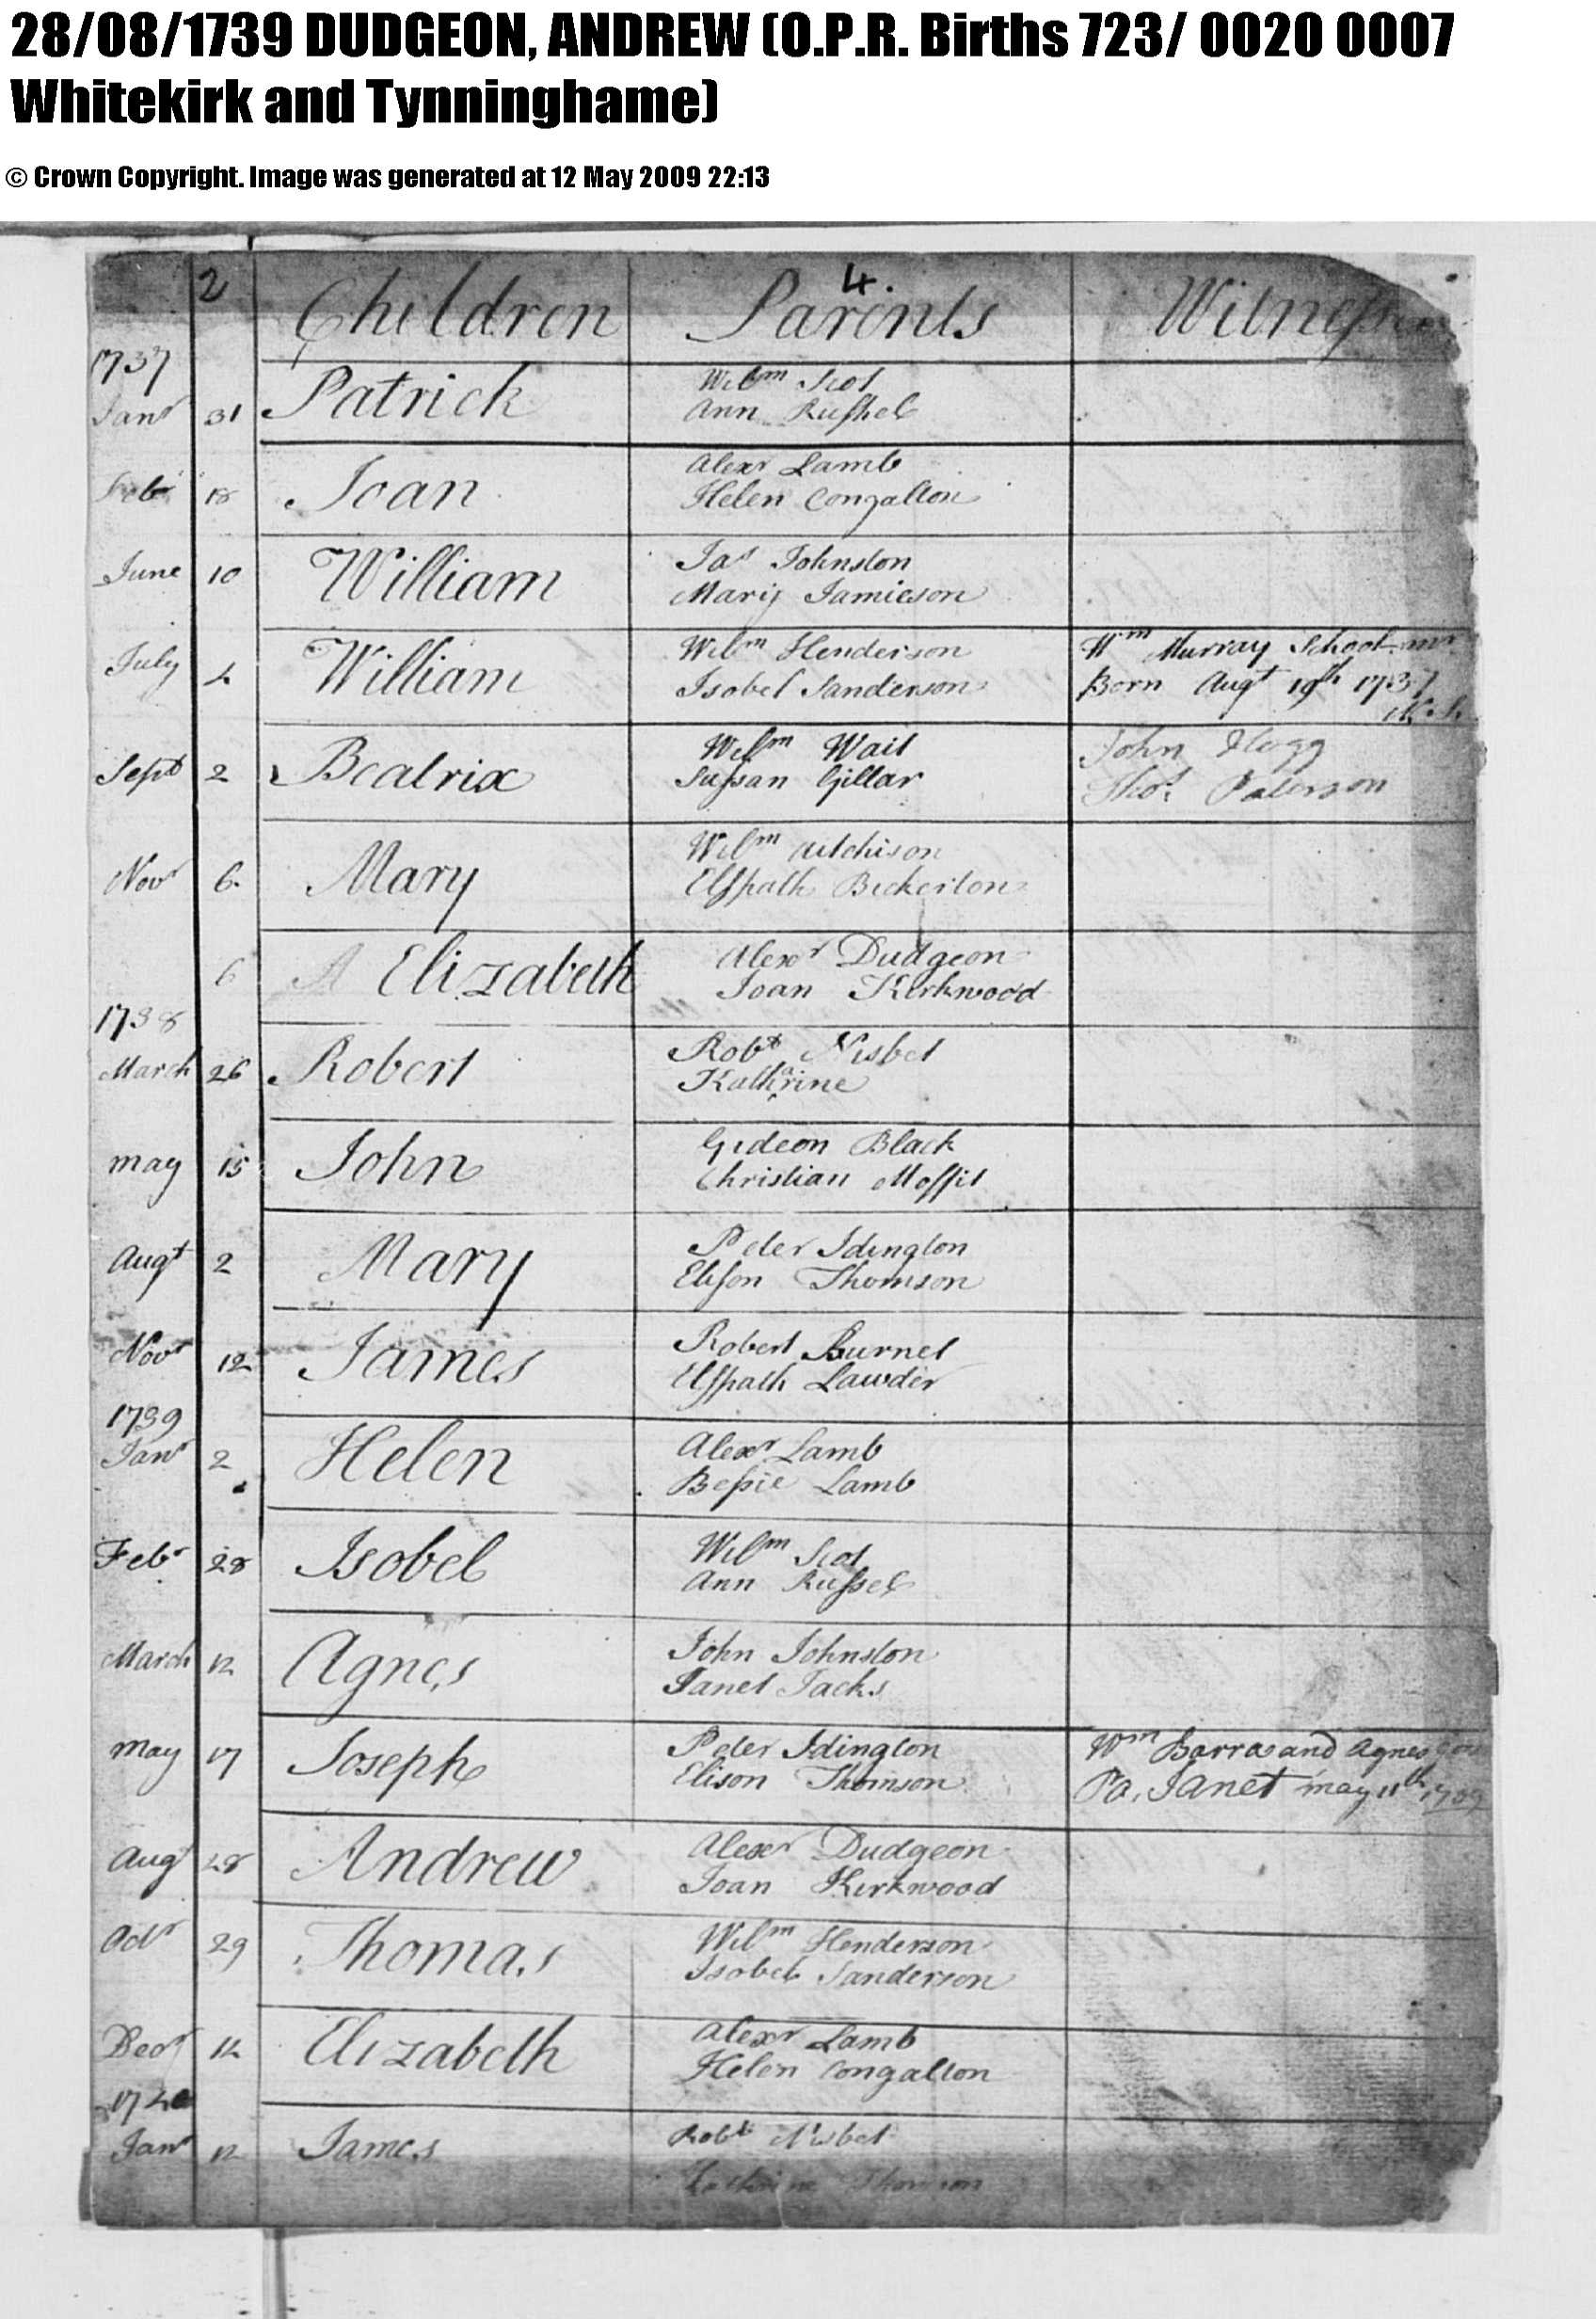 28/08/1739 DUDGEON, ANDREW (O.P.R. Births 723/ 0020 0007
Whitekirk and Tynninghame)
© Crown Copyright. Image was generated at 12 May 2009 22:13
2 4.
Children Parents Witnesses
1737
Janr 31 Patrick Willm Scot
Ann Russhel
Febr 18 Joan Alexr Lamb
Helen Congalton
June 10 William Jas Johnston
Mary Jamieson
July 4 William Willm Henderson Wm Murray School mr
Isobel Sanderson Born Augt 19th 1737
N.S.
Sept 2 Beatrix Willm Wait John Hogg
Sussan Gillar Thos. Paterson
Novr 6. Mary Willm Aitchison
Elspath Bickerton
6 A Elizabeth Alexr Dudgeon
Joan Kirkwood
1738
March 26 Robert Robt Nisbet
Katharine
may 15 John Gideon Black
Christian Moffit
Augt 2 Mary Peter Idington
Elison Thomson
Novr 12 James Robert Burnet
Elspath Lawder
1739
Janr 2 Helen Alexr Lamb
Bessie Lamb
Febr 28 Isobel Willm Scot
Ann Russel
March 12 Agnes John Johnston
Janet Jacks
may 17 Joseph Peter Idington Wm Barra and Agnes
Elison Thomson Da. Janet may 11th 1739
Augt 28 Andrew Alexr Dudgeon
Joan Kirkwood
Octr 29 Thomas Willm Henderson
Isobel Sanderson
Decr 12 Elizabeth Alexr Lamb
Helen Congalton
1740
Janr 12 James Robt Nisbet
Katharine Thomson